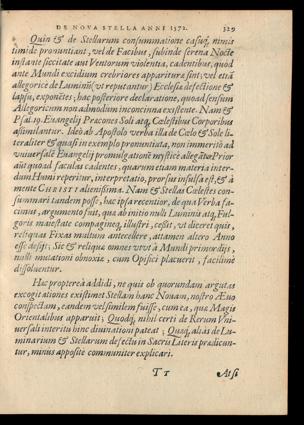 DE NOVA STELLA ANNI 1572. 329
Quin & de Stellarum consummatione casuq́, nimis
timide pronuntiant, vel de Facibus, subinde serena Nocte
instante siccitate aut Ventorum violentia, cadentibus, quod
ante Mundi excidium crebriores appariturę sint; vel etiā
allegorice de Luminū (vt reputantur) Ecclesiæ defectione &
lapsu, exponētes; hac posteriore declaratione, quoad sensum
Allegoricum non admodum inconcinna existente. Nam &
Psal. 19. Euangelij Præcones Soli atq, Cœlestibus Corporibus
assimilantur. Ideò ab Apostolo verba illa de Cœlo & Sole li-
teraliter & quasi in exemplo pronuntiata, non immeritò ad
vniuersalē Euangelij promulgationē mysticè allegātur. Prior
aūt quoad faculas cadentes, quarum etiam materia inter-
dum Humi reperitur, interpretatio, prorsus insulsa est, & à
mente CHRISTI alienissima. Nam & Stellas Cœlestes con-
summari tandem posse, hac ipsa recentior, de qua Verba fa-
cimus, argumento fuit, qua ab initio nulli Luminū atq, Ful-
goris maiestate compagineq, illustri, cessit, vt diceret quis,
reliquas Fixas multum antecellere, attamen altero Anno
esse desijt; Sic & reliquæ omnes vtvt à Mundi primordijs,
nulli mutationi obnoxiæ, cum Opifici placuerit, facilimè
dissoluentur.
Hæc proptereà addidi, ne quis ob quorundam argutas
excogitationes existimet Stellam hanc Nouam, nostro Æuo
conspectam, eandem vel similem fuisse, cum ea, quæ Magis
Orientalibus apparuit; Quodq, nihil certi de Rerum Vni-
uersali interitu hinc diuinationi pateat; Quæq, aliàs de Lu-
minarium & Stellarum defectu in Sacris Literis prædicun-
tur, minus apposite communiter explicari.
T T
At si